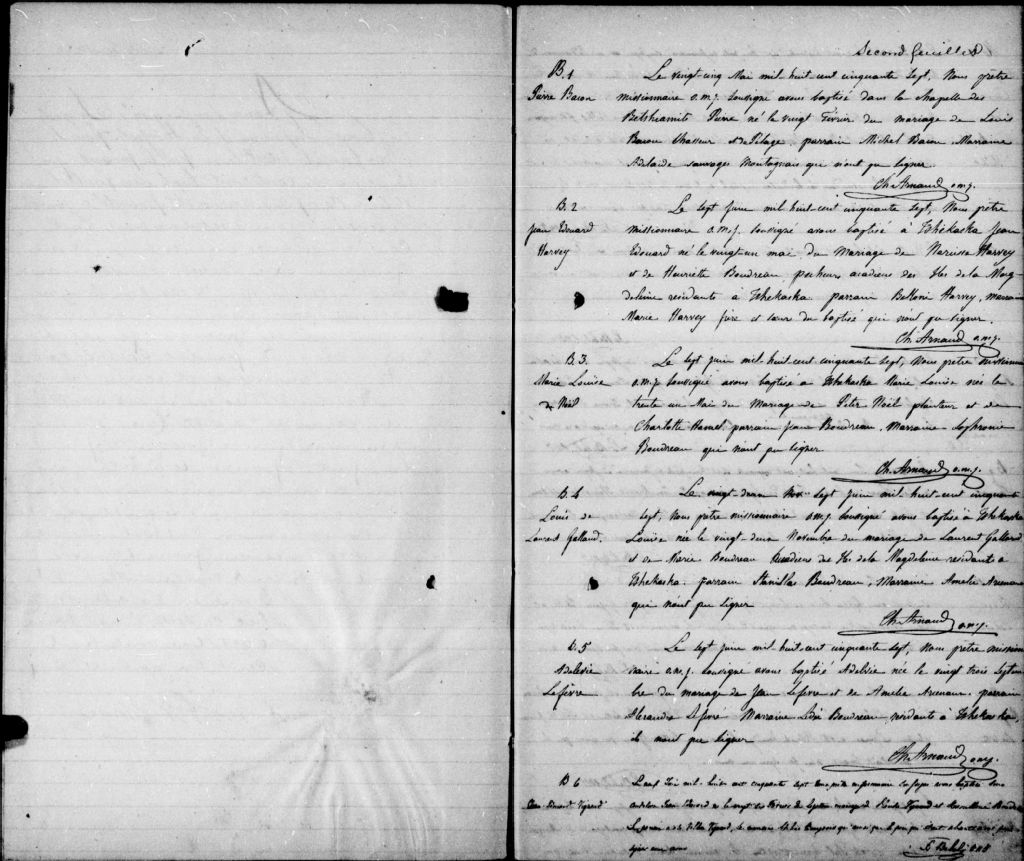 Second feuillet
B.1
Pierre Bacon
Le vingt-cinq Mai mil huit-cent cinquante sept, Nous prêtre
missionnaire o.m.j. soussigné avons baptisé dans la chapelle des
Betshiamits Pierre né le vingt Février du mariage de Louis
Bacon Chasseur et de Pélage parrain Michel Bacon. Marraine
Adelaïde sauvages Montagnais qui n'ont pu signer.
Ch. Arnaud o.m.j.
B.2
Jean Edouard
Harvey
Le sept Juin mil huit-cent cinquante sept, Nous prêtre
missionnaire o.m.j. soussigné avons baptisé à Tshekaska Jean
Edouard né le vingt-un mai du Mariage de Narcisse Harvey
et de Henriette Boudreau pecheur acadiens des Iles de la Mag-
deleine residants à Tshekaska parrain Harvey, marraine
Marie Harvey frère et sœur du baptisé qui n'ont pu signer.
Ch. Arnaud o.m.j.
B.3.
Marie Louise
Noël
Le sept juin mil-huit-cent cinquante sept, Nous prêtre missionn
o.m.j. soussigné avons baptisé à Tshekaska Marie Louise née le
trente un Mai du Mariage de Peter Noël planteur et de
Charlotte Hamel, parrain Jean Boudreau. Marraine Sophronie
Boudreau qui n'ont pu signer
Ch. Arnaud o.m.j.
B.4
Louis de
Laurent Galland
Le vingt-deux Nov. sept juin mil huit-cent cinquante
sept, Nous prêtre missionnaire o.m.j. soussigné avons baptisé à Tshekaska
Louise née le vingt-deux Novembre du mariage de Laurent Galland
et de Marie Boudreau Acadiens des Iles de la Magdeleine residant à
Tshekaska parrain Stanislas Boudreau, Marraine Amelie Arseneau
qui n'ont pu signer
Ch. Arnaud o.m.j.
B.5
Adelvie
Lefèvre
Le sept Juin mil-huit-cent cinquante sept, Nous prêtre mission
naire o.m.j. soussigné avons baptisé Adelvie née le vingt trois Septem
bre du mariage de Jean Lefevre et de Amelie Arseneau, parrain
Alexandre Lefèvre Marraine Boudreau, residants à Tshekaska,
ils n'ont pu signer
Ch. Arnaud o.m.j.
B 6
Edouard
mil huit cent cinquante sept avons baptisé
Jean Edouard né le vingt
Le parrain
signer